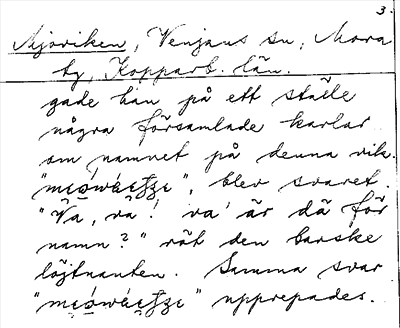 3.
Mjöviken, Venjans sn, Mora
tg, Kopparb. län.
gade han på ett ställe
några församlade karlar
om namnet på denna vik.
"mi̯ówíetʒe", blev svaret.
"Va, va! va' är dä för
namn?" röt den barske
löjtnanten. Samma svar
"mi̯ówíetʒe" upprepades.